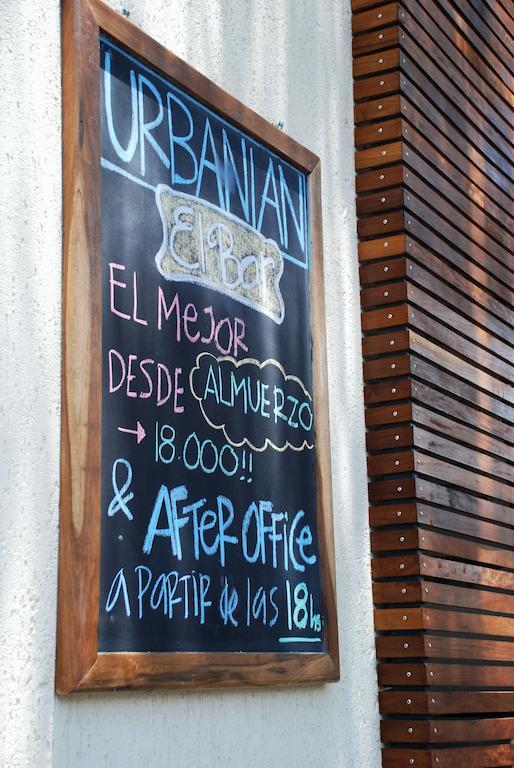 URBANIAN
El Bar
EL MEJOR
DESDE ALMUERZO
→ 18.000!!
& AFTER OFFICE
A PARTIR de las 18hs.